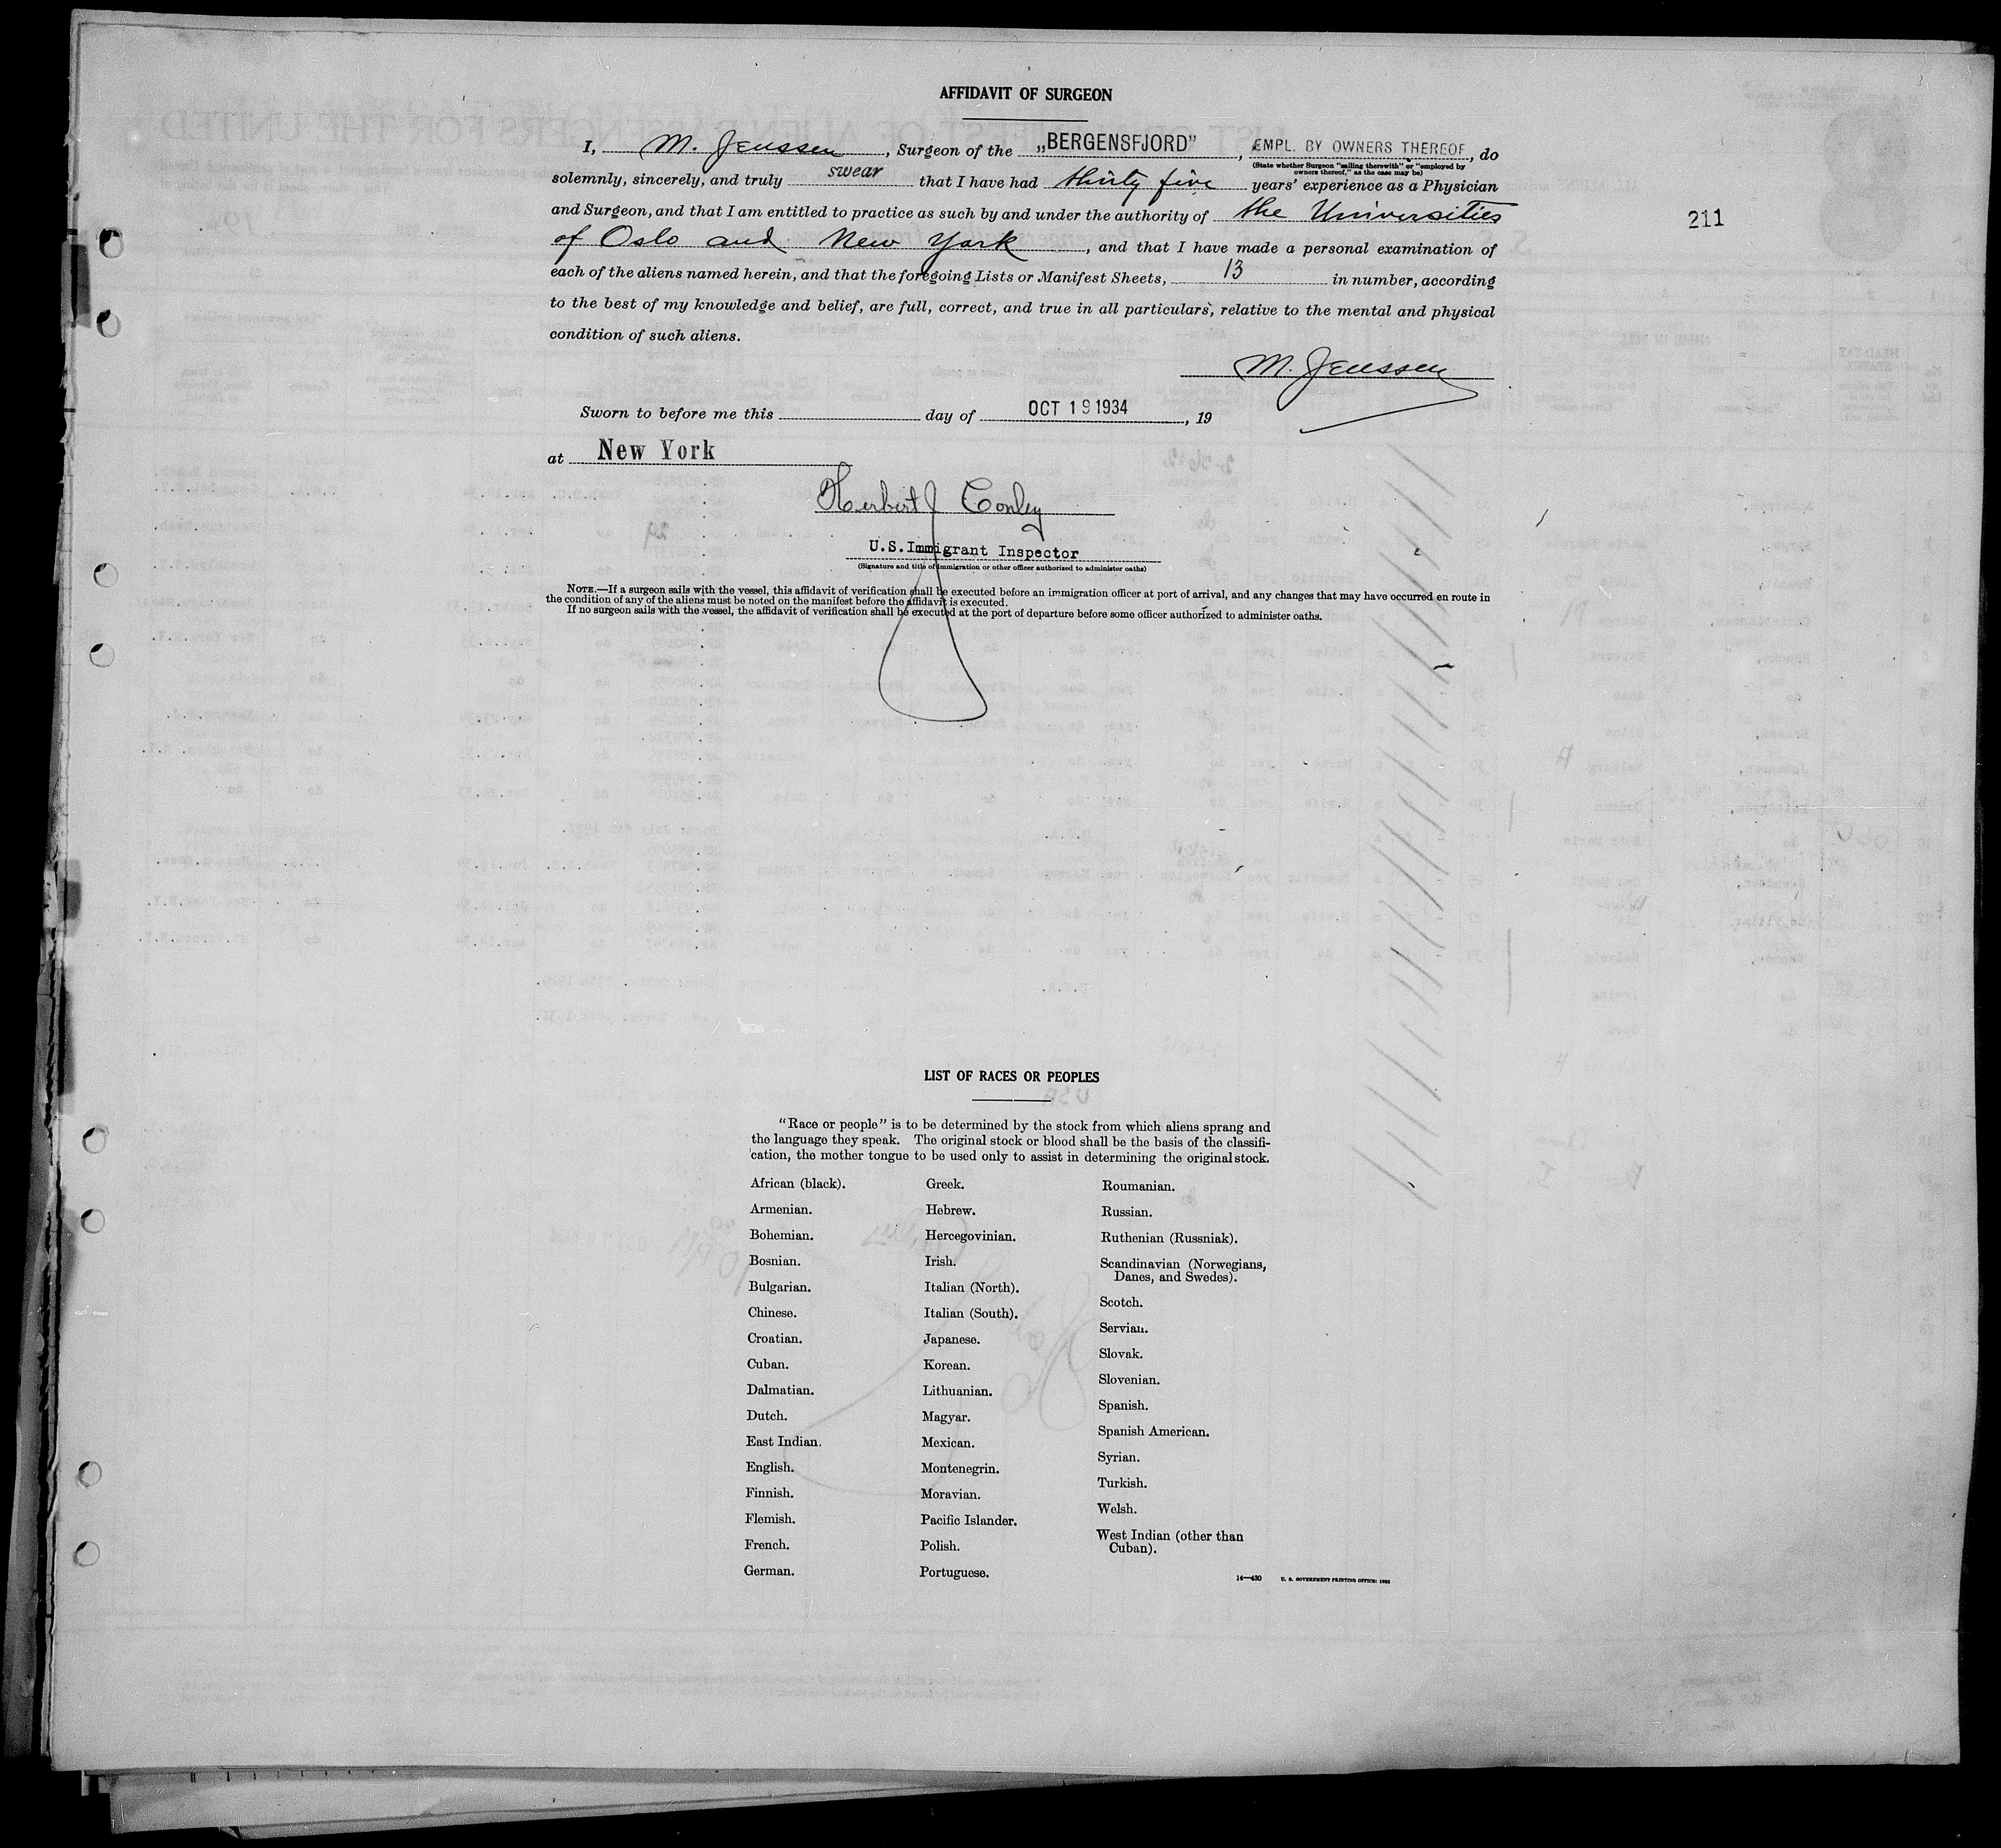 AFFIDAVIT OF SURGEON
I, M. Jenssen, Surgeon of the „BERGENSFJORD”, EMPL. BY OWNERS THEREOF, do
(State whether Surgeon “sailing therewith” or “employed by
owners thereof,” as the case may be)
solemnly, sincerely, and truly swear that I have had thirty five years’ experience as a Physician
and Surgeon, and that I am entitled to practice as such by and under the authority of the Universities
211
of Oslo and New York, and that I have made a personal examination of
each of the aliens named herein, and that the foregoing Lists or Manifest Sheets, 13 in number, according
to the best of my knowledge and belief, are full, correct, and true in all particulars, relative to the mental and physical
condition of such aliens.
M. Jenssen
Sworn to before me this day of OCT 19 1934, 19
at New York
Herbert J Conley
U.S. Immigrant Inspector
(Signature and title of immigration or other officer authorized to administer oaths)
NOTE.—If a surgeon sails with the vessel, this affidavit of verification shall be executed before an immigration officer at port of arrival, and any changes that may have occurred en route in
the condition of any of the aliens must be noted on the manifest before the affidavit is executed.
If no surgeon sails with the vessel, the affidavit of verification shall be executed at the port of departure before some officer authorized to administer oaths.
LIST OF RACES OR PEOPLES
“Race or people” is to be determined by the stock from which aliens sprang and
the language they speak. The original stock or blood shall be the basis of the classifi-
cation, the mother tongue to be used only to assist in determining the original stock.
African (black).
Armenian.
Bohemian.
Bosnian.
Bulgarian.
Chinese.
Croatian.
Cuban.
Dalmatian.
Dutch.
East Indian.
English.
Finnish.
Flemish.
French.
German.
Greek.
Hebrew.
Hercegovinian.
Irish.
Italian (North).
Italian (South).
Japanese.
Korean.
Lithuanian.
Magyar.
Mexican.
Montenegrin.
Moravian.
Pacific Islander.
Polish.
Portuguese.
Roumanian.
Russian.
Ruthenian (Russniak).
Scandinavian (Norwegians,
Danes, and Swedes).
Scotch.
Servian.
Slovak.
Slovenian.
Spanish.
Spanish American.
Syrian.
Turkish.
Welsh.
West Indian (other than
Cuban).
14—430 U. S. GOVERNMENT PRINTING OFFICE: